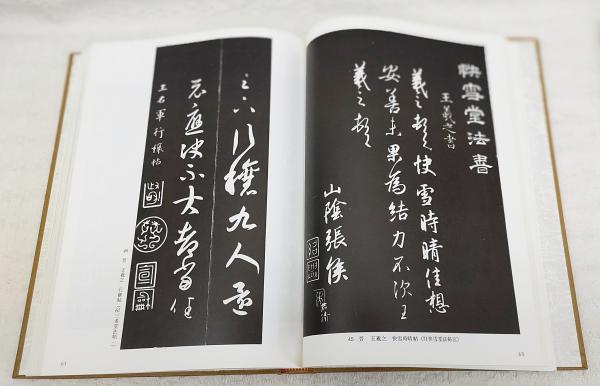 快雪堂法書
王羲之書
羲之頓首快雪時晴佳想
安善未果為結力不次王
羲之頓首
山陰張侯
45 晋 王羲之 快雪時晴帖
60
足下行穰九人還
示應決不大都當佳
王右軍行穰帖
46 晋 王羲之 行穰帖
61